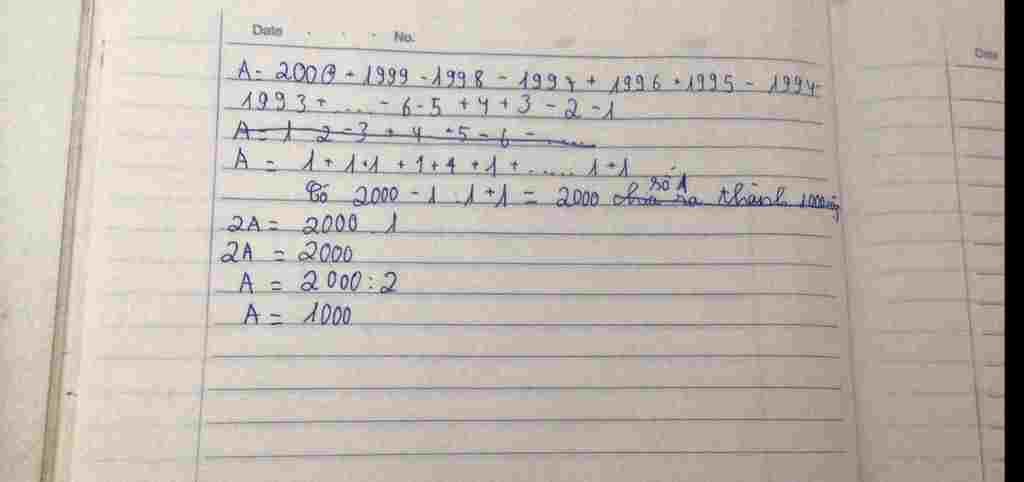 Date No.
Date
A = 2000 + 1999 - 1998 - 1997 + 1996 + 1995 - 1994 -
1993 + .... - 6 - 5 + 4 + 3 - 2 - 1
A = 1 2 - 3 + 4 + 5 - 6 - .....
A = 1 + 1 + 1 + 1 + 1 + 1 + ..... 1 + 1
Có 2000 - 1 . 1 + 1 = 2000 số 1 thành 1000
2A = 2000 1
2A = 2000
A = 2000 : 2
A = 1000